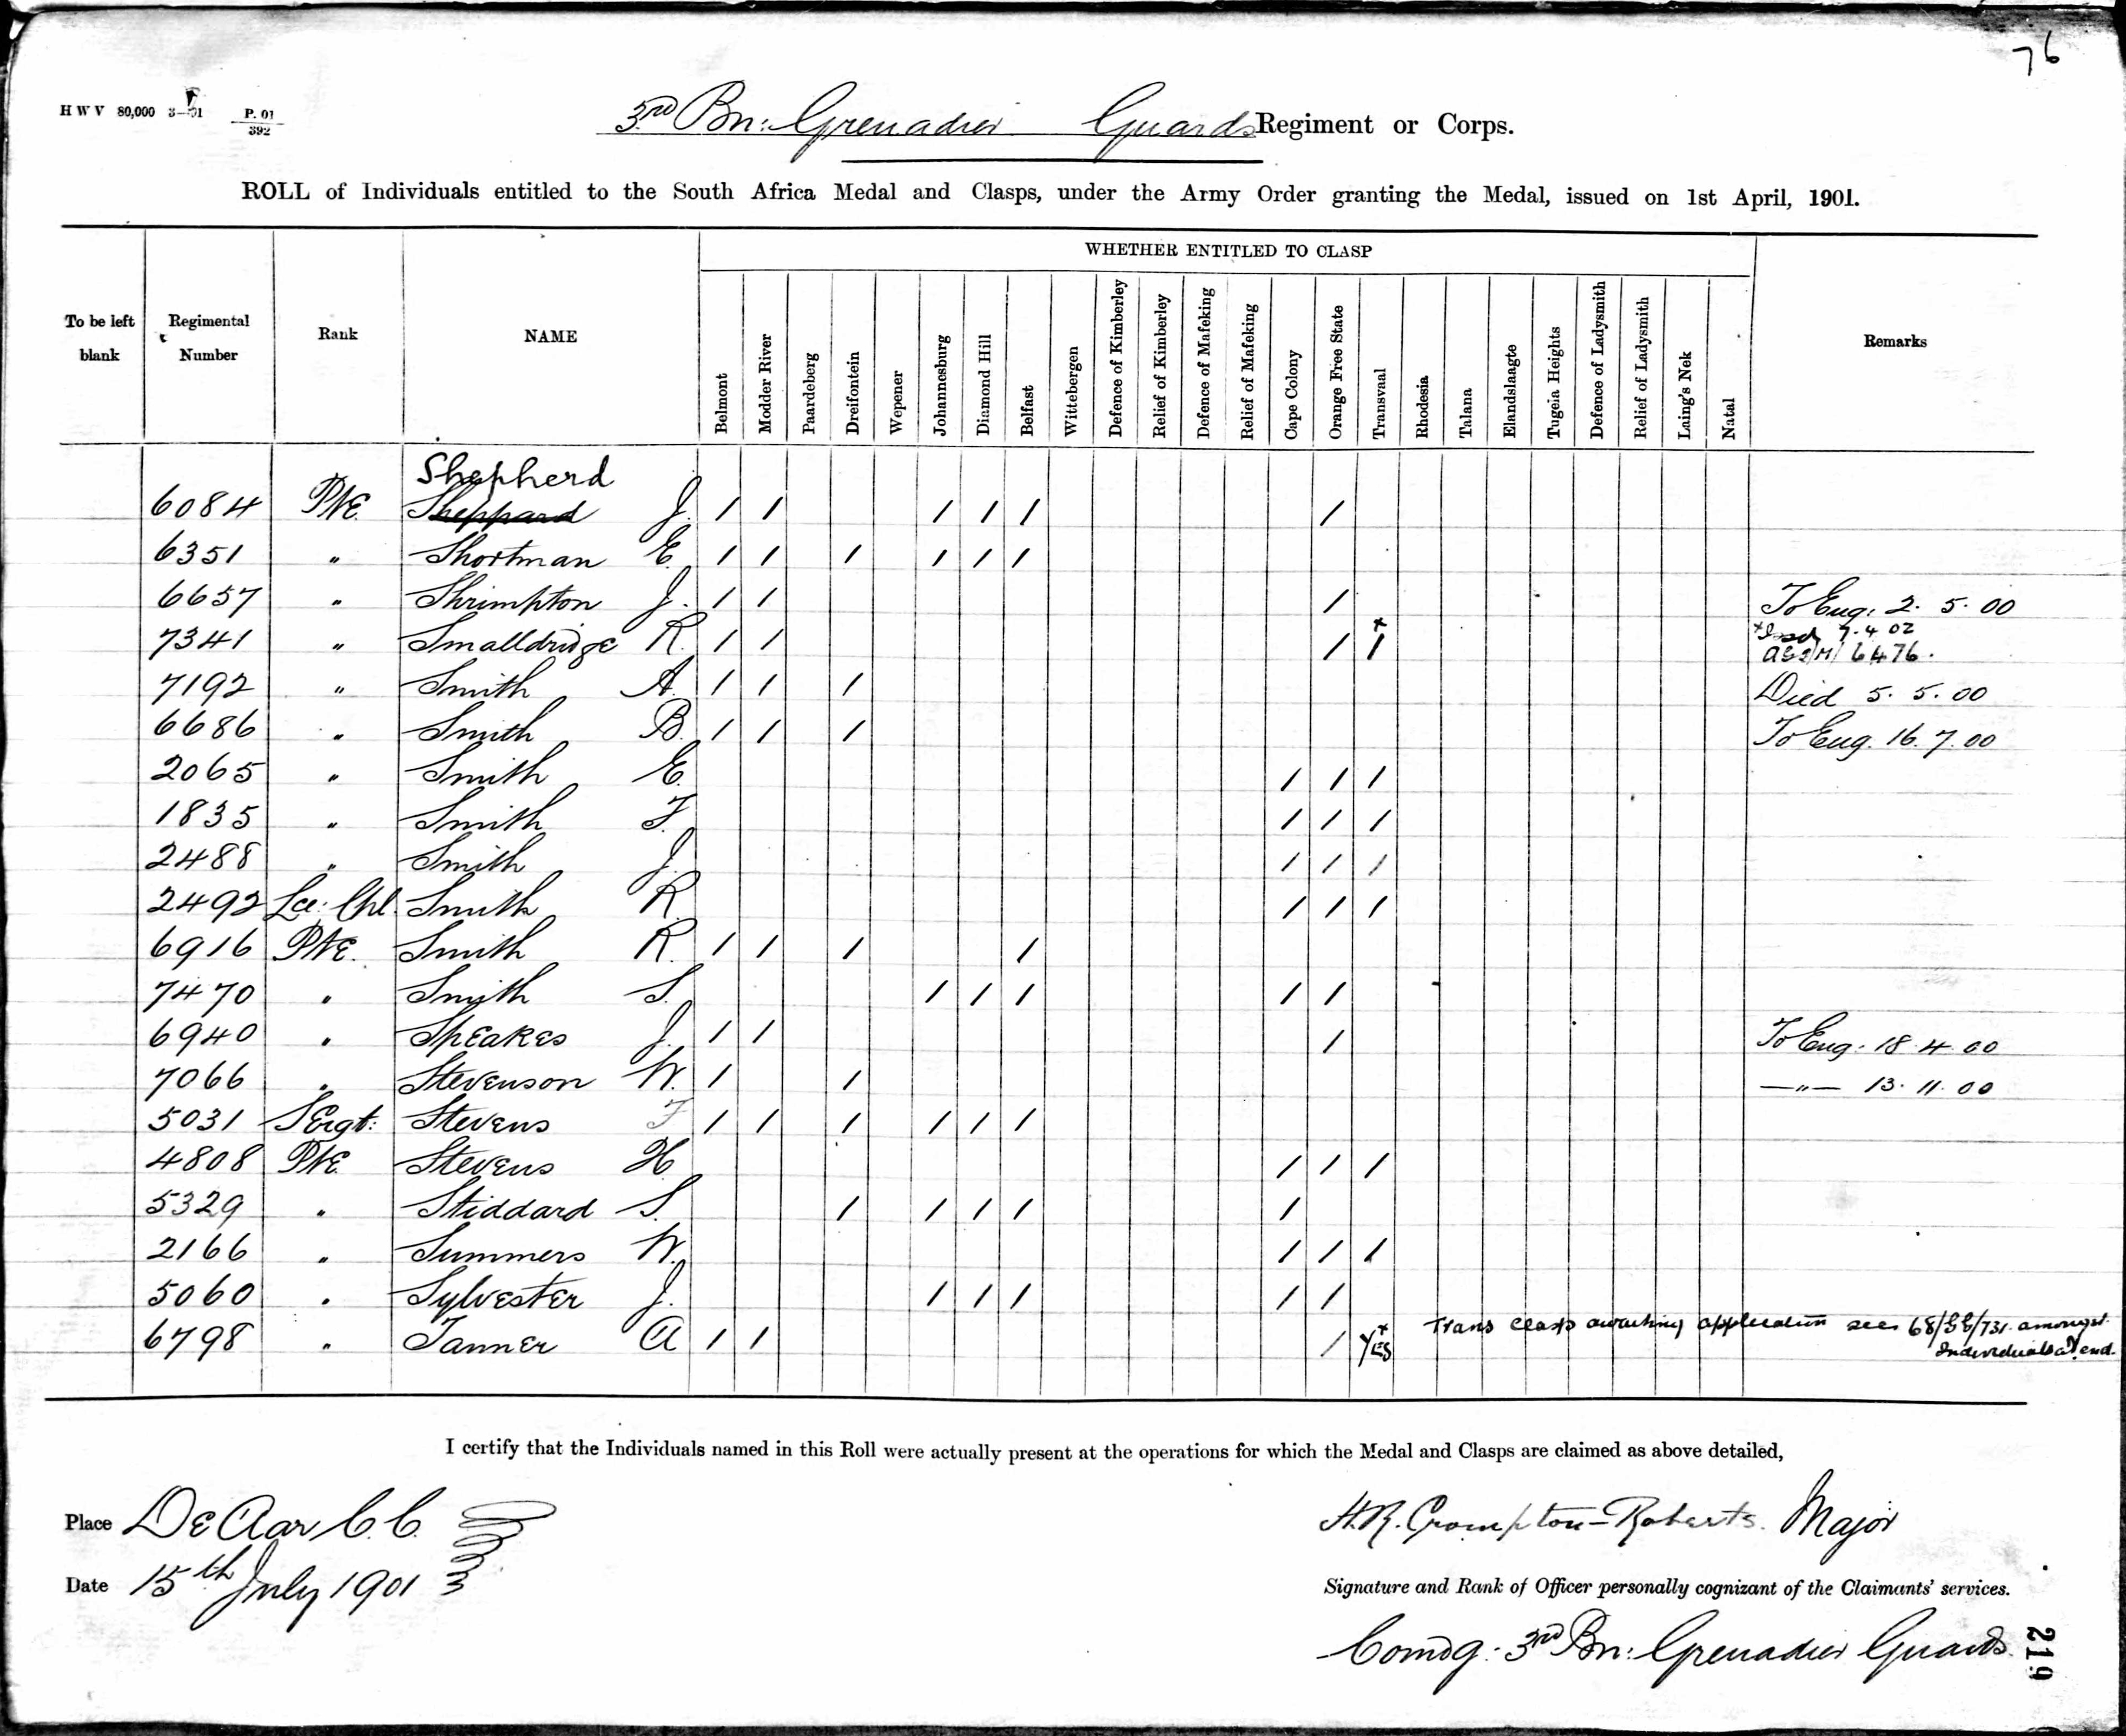 76
H W V 80,000 3—01 P. 01
392
3rd Bn: Grenadier Guards Regiment or Corps.
ROLL of Individuals entitled to the South Africa Medal and Clasps, under the Army Order granting the Medal, issued on 1st April, 1901.
To be left blank
Regimental Number
Rank
NAME
WHETHER ENTITLED TO CLASP
Belmont
Modder River
Paardeberg
Dreifontein
Wepener
Johannesburg
Diamond Hill
Belfast
Wittebergen
Defence of Kimberley
Relief of Kimberley
Defence of Mafeking
Relief of Mafeking
Cape Colony
Orange Free State
Transvaal
Rhodesia
Talana
Elandslaagte
Tugela Heights
Defence of Ladysmith
Relief of Ladysmith
Laing's Nek
Natal
Remarks
Shepherd
6084 Pte. Sheppard J. / / / / / /
6351 " Shortman E. / / / / / /
6657 " Shrimpton J. / / / To Eng: 2. 5. 00
7341 " Smalldridge R. / / / x / x 7.4 02
6476.
7192 " Smith A. / / / Died 5. 5. 00
6686 " Smith B. / / / To Eng. 16. 7. 00
2065 " Smith E. / / /
1835 " Smith F. / / /
2488 " Smith J. / / /
2492 Lce: Cpl. Smith R. / / /
6916 Pte. Smith R. / / / /
7470 " Smith S. / / / / /
6940 " Speakes J. / / / To Eng. 18. 4. 00
7066 " Stevenson W. / / —"— 13. 11. 00
5031 Sergt: Stevens F / / / / / /
4808 Pte Stevens H. / / /
5329 " Stiddard S. / / / / /
2166 " Summers W. / / /
5060 " Sylvester J. / / / / /
Trans clasp awaiting application see 68/GG/731 amongst
6798 " Tanner A / / / x Yes Individuals at end.
I certify that the Individuals named in this Roll were actually present at the operations for which the Medal and Clasps are claimed as above detailed,
Place De Aar C.C.
H.R. Crompton-Roberts. Major
Date 15th July 1901
Signature and Rank of Officer personally cognizant of the Claimants' services.
Comdg: 3rd Bn: Grenadier Guards.
219